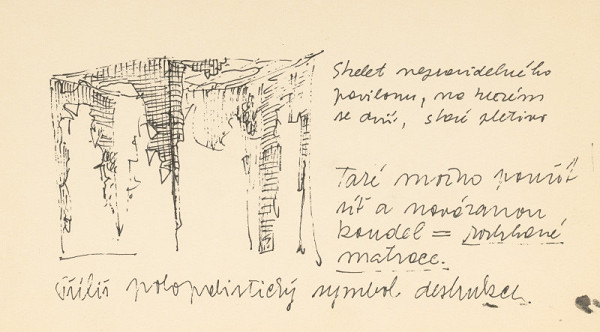 Skelet nepravidelného
pavilonu, na kterém
se drží, staré pletivo
Také možno použít
síť a navázanou
koudel =
matrace.
Příliš polopatistický symbol destrukce.